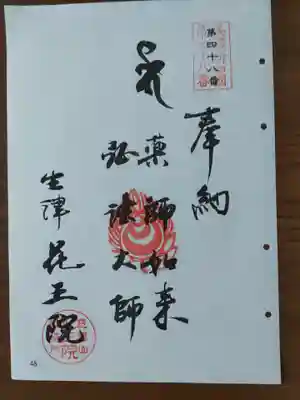 第四十八番
奉納
薬師如来
弘法大師
生津 花王院
48